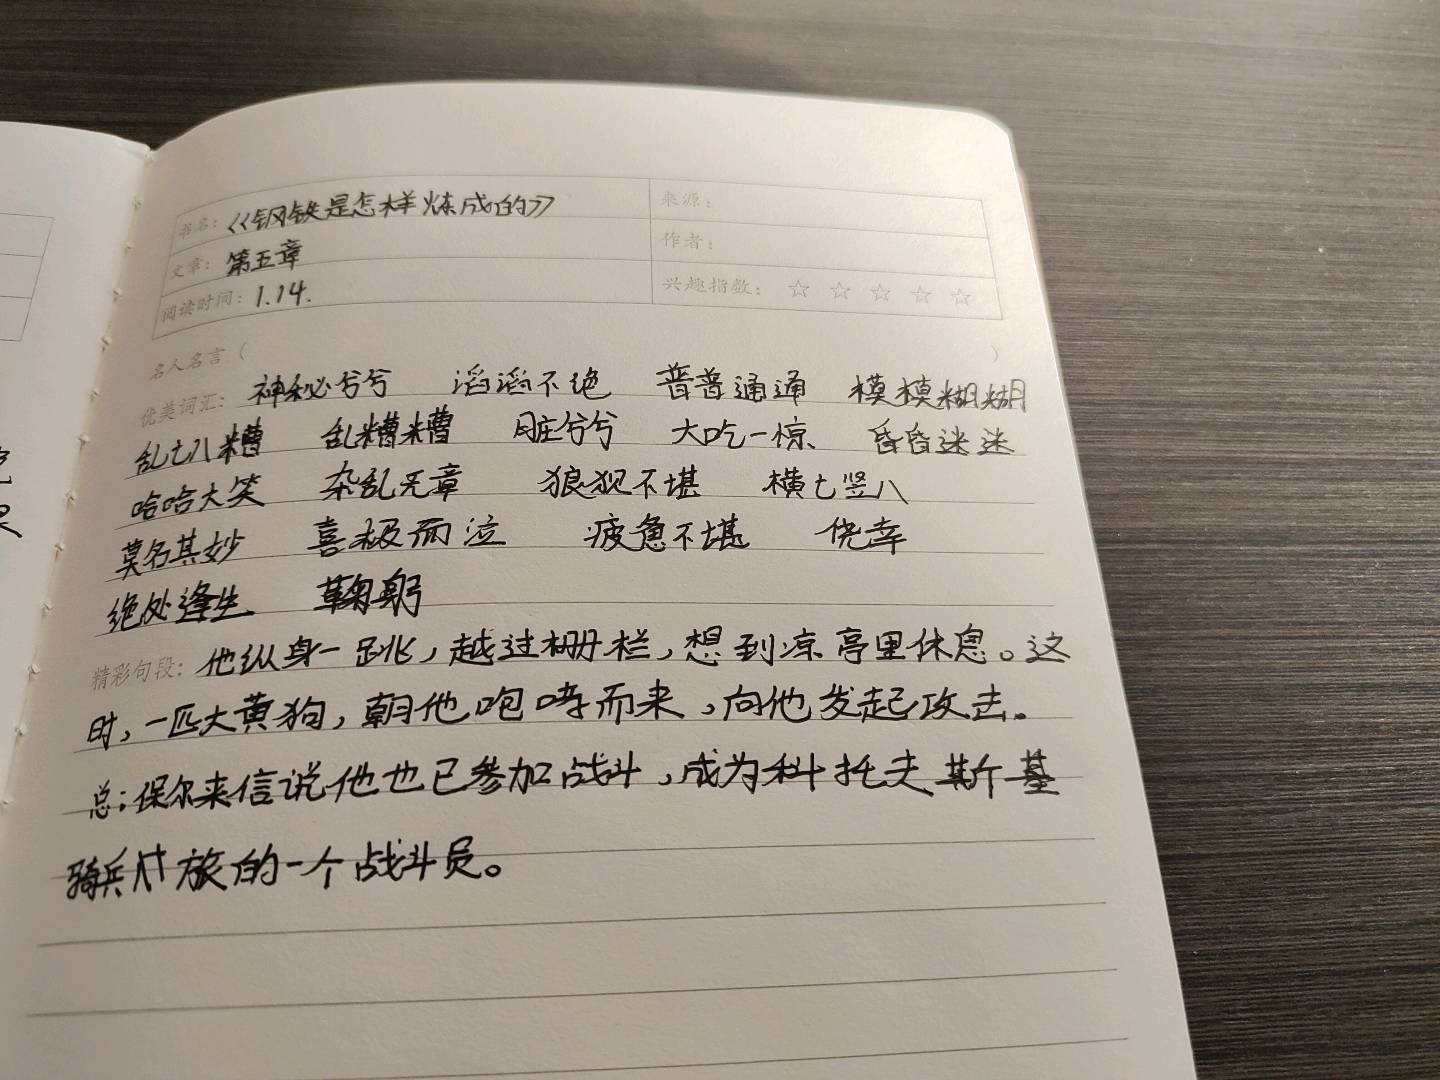 书名：《钢铁是怎样炼成的》 来源：
文章：第五章 作者：
阅读时间：1.14. 兴趣指数：☆ ☆ ☆ ☆ ☆
名人名言（ ）
优美词汇：神秘兮兮 滔滔不绝 普普通通 模模糊糊
乱七八糟 乱糟糟 脏兮兮 大吃一惊 昏昏迷迷
哈哈大笑 杂乱无章 狼狈不堪 横七竖八
莫名其妙 喜极而泣 疲惫不堪 侥幸
绝处逢生 鞠躬
精彩句段：他纵身一跳，越过栅栏，想到凉亭里休息。这
时，一匹大黄狗，朝他咆哮而来，向他发起攻击。
总：保尔来信说他也已参加战斗，成为科托夫斯基
骑兵旅的一个战斗员。